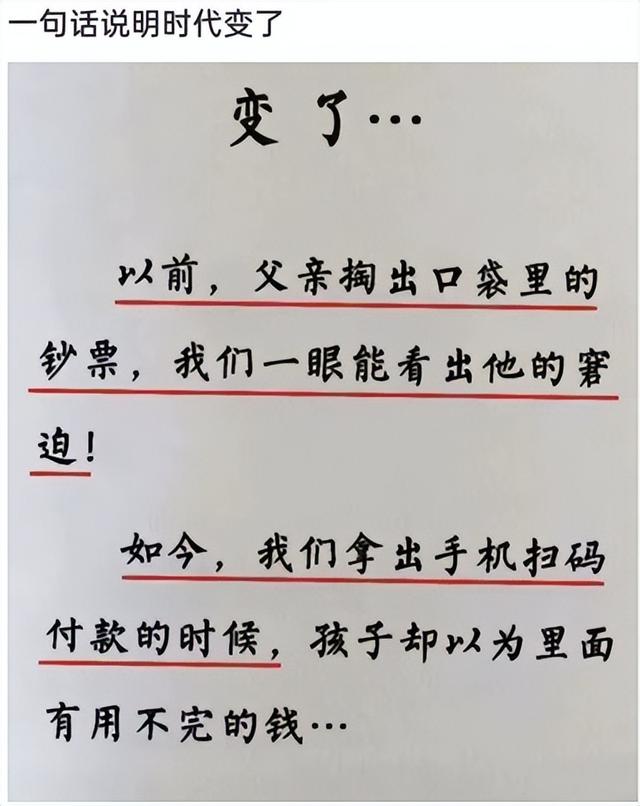 一句话说明时代变了
变了…
以前，父亲掏出口袋里的
钞票，我们一眼能看出他的窘
迫！
如今，我们拿出手机扫码
付款的时候，孩子却以为里面
有用不完的钱…